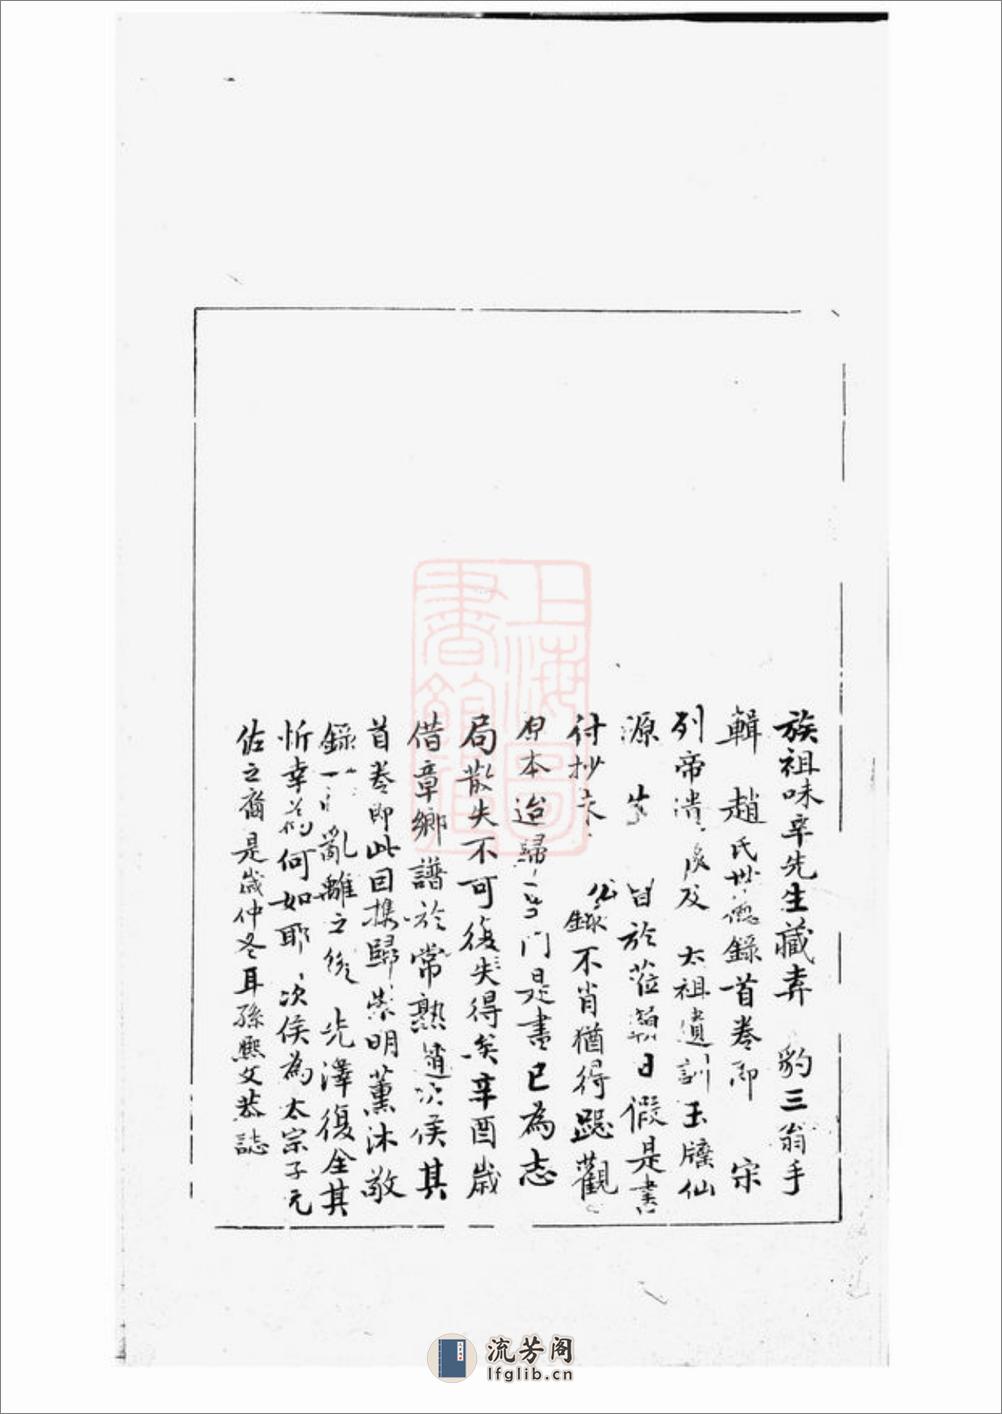 族祖味辛先生藏弆 豹三翁手
輯 趙氏世德錄首卷即 宋
列帝 及 太祖遺訓玉牒仙
源 於 日假是書
付抄 錄不肖猶得跽觀
原本迨歸 門是書已為志
局散失不可復得矣辛酉歲
借章鄉譜於常熟趙次侯其
首卷即此因携歸 明薰沐敬
錄一 亂離之後 先澤復全其
忻幸為何如耶次侯為太宗子元
佐之裔是歲仲冬耳孫熙文恭誌
上海圖書館藏
流芳阁
lfglib.cn